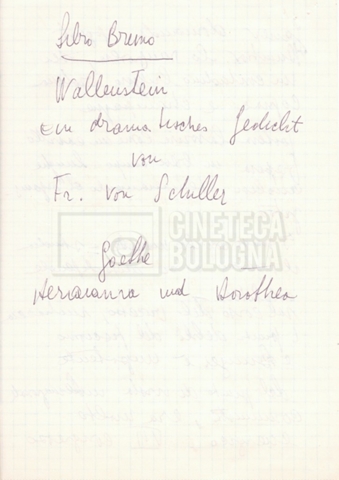 Libro Bruno
Wallenstein
Ein dramatisches Gedicht
von
Fr. von Schiller
CINETECA
BOLOGNA
Goethe
und Dorothea